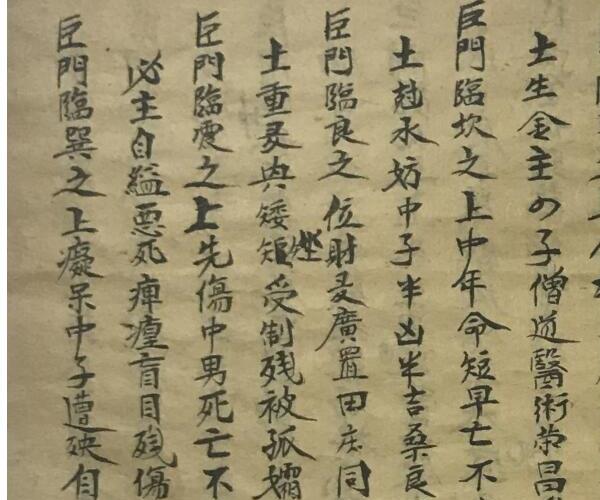 土生金主の子僧道醫術荣昌
臣門臨坎之上中年命短早亡不
土尅水妨中子半凶半吉桑良
臣門臨艮之位財㪅廣置田庄同
土重㪅典矮矩矬受制残被孤孀
臣門臨震之上先傷中男死亡不
必主自縊惡死痺瘽盲目残傷
臣門臨巽之上癡呆中子遭殃自